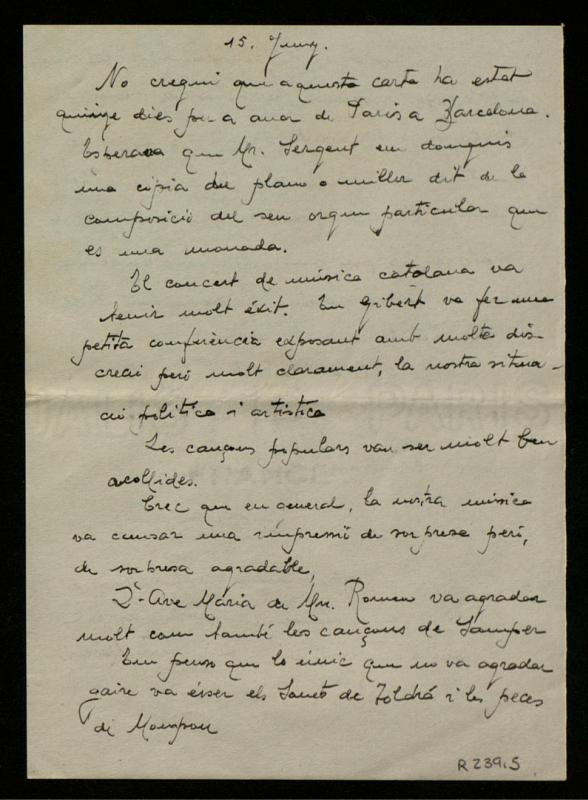 15. Juny.
No cregui que aquesta carta ha estat
quinze dies per a anar de Paris a Barcelona.
Esperava que Mr. Sergent em dongués
una cópia del plano o millor dit de la
composició del seu orgue particular que
es una monada.
El concert de música catalana va
tenir molt éxit. En Gibert va fer una
petita conferència exposant amb molta dis-
creció però molt clarament, la nostra situa-
ció política i artística
Les cançons populars van ser molt ben
acollides.
Crec que en general, la nostra música
va causar una impressió de sorpresa però,
de sorpresa agradable.
L'Ave Maria de Mn. Romeu va agradar
molt com també les cançons de Samper
Em penso que lo únic que no va agradar
gaire va ésser els Sonets de Toldrá i les peces
de Mompou
R 239.5